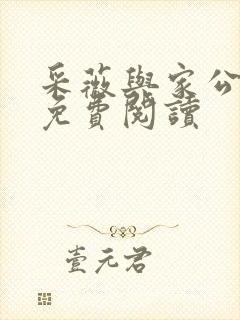 采薇與家公
免費閱讀
壹元君